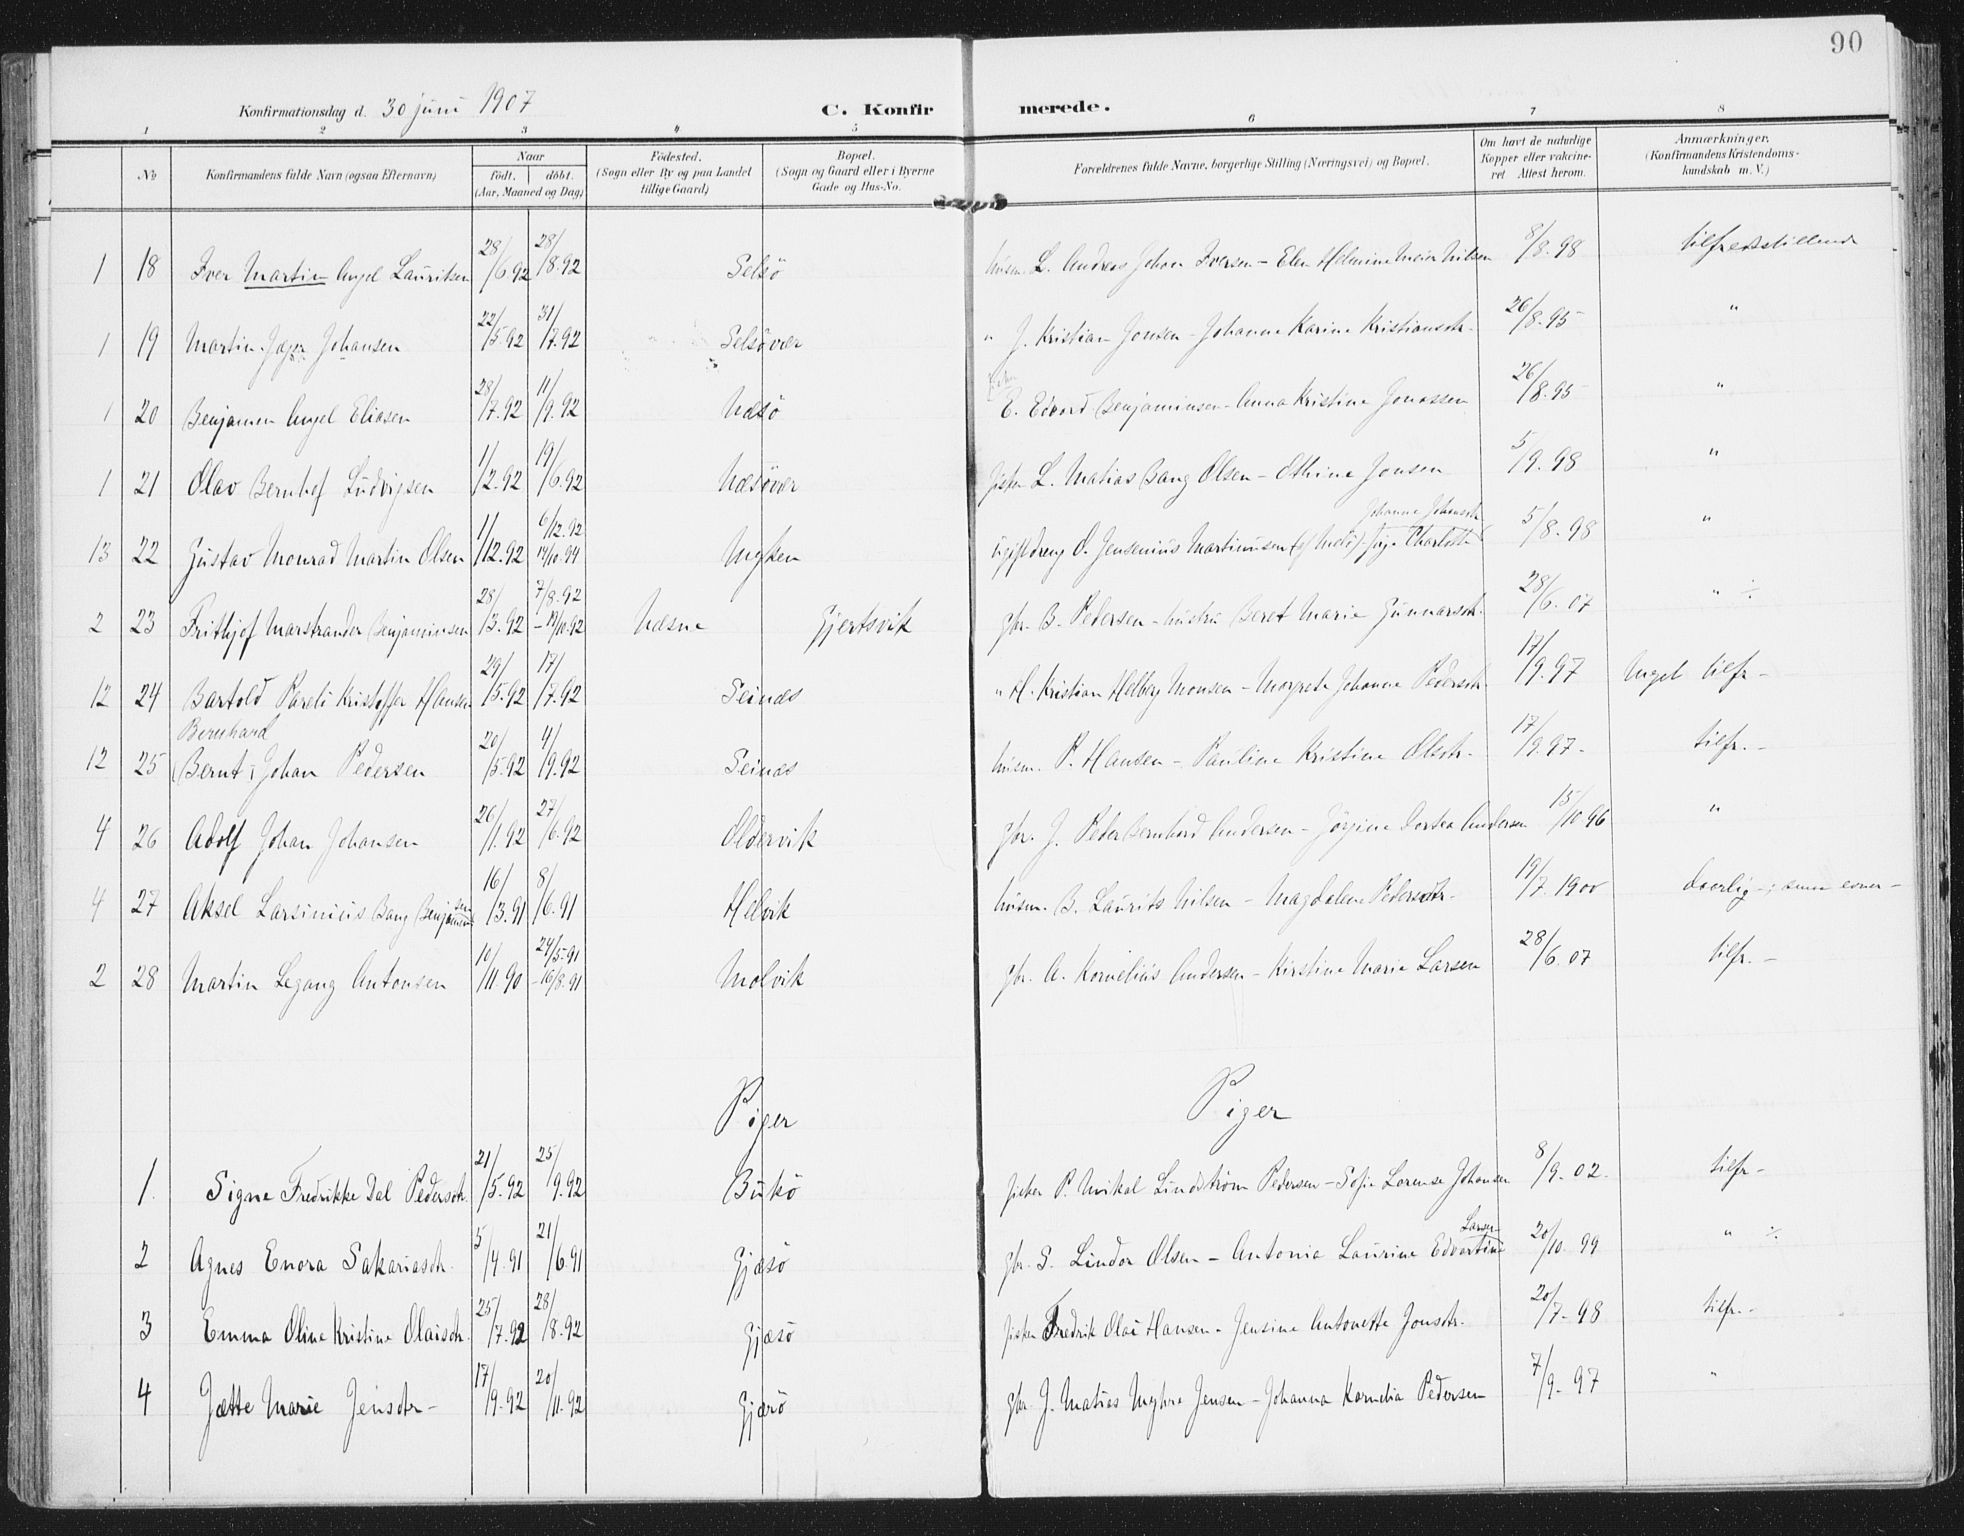 90
Konfirmationsdag d. 30 juni 1907 C. Konfir merede.
1 2 3 4 5 6 7 8
No Konfirmandens fulde Navn (ogsaa Efternavn) Naar födt. döbt. (Aar, Maaned og Dag) Födested. (Sogn eller By og paa Landet tillige Gaard) Bopæl. (Sogn og Gaard eller i Byerne Gade og Hus-No. Forældrenes fulde Navne, borgerlige Stilling (Næringsvei) og Bopæl. Om havt de naturlige Kopper eller vakcineret Attest herom. Anmærkninger. (Konfirmandens Kristendomskundskab m.V.)
1 18 Iver Martin Angel Lauritsen 28/6.92 28/8.92 Selsö husm. L. Andreas Johan Iversen - Elen Helmine Meier Nilsen 8/8.98 tilfredsstillende
1 19 Martin Johansen 22/5.92 31/7.92 Selsövær " J. Kristian Jonsen - Johanna Karine Kristiansdtr. 26/8.95 "
1 20 Benjamen Angel Eliasen 28/7.92 11/9.92 Næsö E. Edvard Benjaminsen - Anna Kristine Jonassen 26/8.95 "
1 21 Olav Bernhof Ludvigsen 1/2.92 19/6.92 Næsövær fisker L. Matias Bang Olsen - Ethine Jonsen 5/9.98 "
13 22 Gustav Monrad Martin Olsen 1/12.92 6/12.92 14/10.94 Myken ugift dreng O. Jensenius Martinussen - pige Charlotte Johanne Johansdtr. 5/8.98 "
2 23 Frithjof Marstrander Benjaminsen 28/3.92 7/8.92 - 19/10.92 Næsne Gjertsvik gbr. B. Pedersen - hustru Beret Marie Gunnarsdtr. 28/6.07 " ÷
12 24 Bartold Pareli Kristoffer Hansen 29/5.92 17/7.92 Seinæs " H. Kristian Helberg Monsen - Margrete Johanna Pedersdtr. 17/9.97 Meget tilfr -
Bernhard
12 25 Bernt Johan Pedersen 20/5.92 4/9.92 Seinæs husm. P. Hansen - Pauline Kristine Olsdtr. 17/9.97- tilfr. -
4 26 Adolf Johan Johansen 26/1.92 27/6.92 Oldervik gbr. J. Peder Bernhard Andersen - Jörgine Dortea Andersen 15/10 96 "
4 27 Aksel Larsinius Bang Benjaminsen 16/3.91 8/6.91 Helvik husm. B. Laurits Nilsen - Magdalena Pedersdtr. 19/7.1900 daarlig -; evner -
2 28 Martin Legang Antonsen 10/11.90 24/5.91 -16/8.91 Molvik gbr. A. Kornelius Andersen - Kirstine Marie Larsen 28/6.07 tilfr. -
Piger Piger
1. Signe Fredrikke Dal Pedersdtr. 21/5.92 25/9.92 Bukö fisker P. Mikal Lindström Pedersen - Sofie Lorense Johansen 8/9.02. tilfr -
2 Agnes Enora Sakariasdtr. 5/4.91 21/6.91 Gjæsö gbr. S. Lindor Olsen - Antonia Laurine Edvartine Larsen 20/10.99 " ÷
3 Emma Oline Kristine Olaisdtr. 25/7.92 28/8.92 Gjæsö fisker Fredrik Olai Hansen - Jensine Antonette Jonsdtr. 20/7.98 tilfr. -
4 Jætte Marie Jensdtr - 17/9.92 20/11.92 Gjærö gbr. J. Matias Myhre Jensen - Johanna Kornelia Pedersen 7/9-97 "